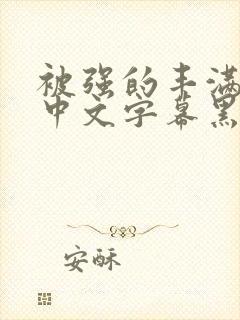 被强的丰满
中文字幕黑
安酥